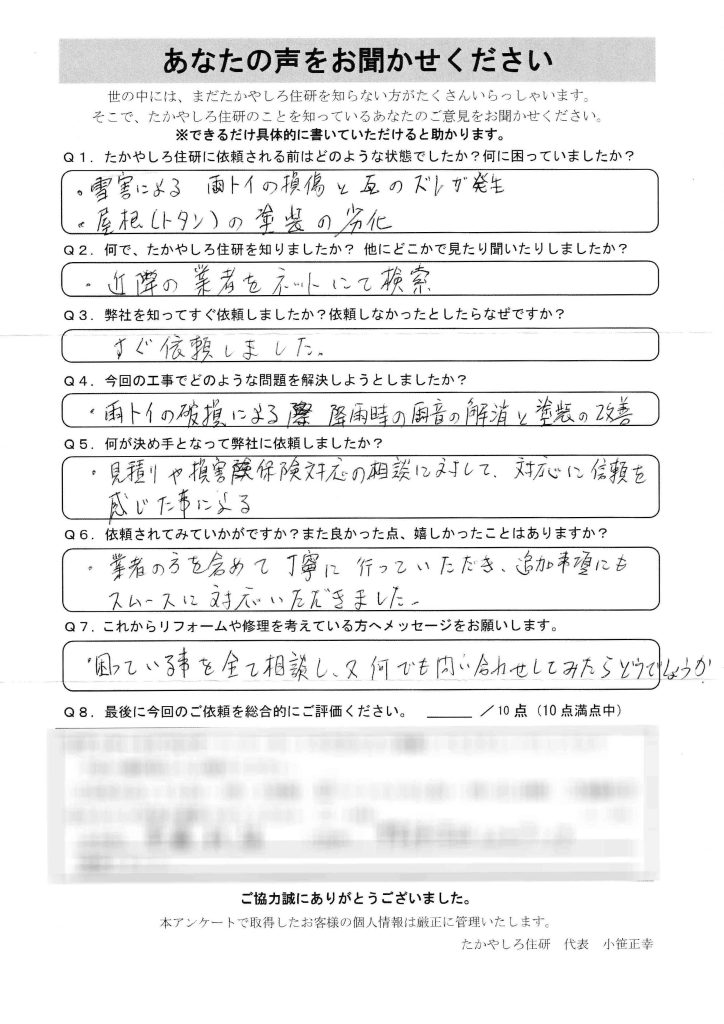 あなたの声をお聞かせください
世の中には、まだたかやしろ住研を知らない方がたくさんいらっしゃいます。
そこで、たかやしろ住研のことを知っているあなたのご意見をお聞かせください。
※できるだけ具体的に書いていただけると助かります。
Q1．たかやしろ住研に依頼される前はどのような状態でしたか？何に困っていましたか？
。雪害による 雨トイの損傷と瓦のズレが発生
・屋根(トタン)の塗装の劣化
Q2．何で、たかやしろ住研を知りましたか？ 他にどこかで見たり聞いたりしましたか？
・近隣の業者をネットにて検索
Q3．弊社を知ってすぐ依頼しましたか？依頼しなかったとしたらなぜですか？
すぐ依頼しました。
Q4．今回の工事でどのような問題を解決しようとしましたか？
・雨トイの破損による 降雨時の雨音の解消と塗装の改善
Q5．何が決め手となって弊社に依頼しましたか？
・見積りや損害保険対応の相談に対して、対応に信頼を
感じた事による
Q6．依頼されてみていかがですか？また良かった点、嬉しかったことはありますか？
・業者の方を含めて丁寧に行っていただき、追加事項にも
スムースに対応いただきました。
Q7．これからリフォームや修理を考えている方へメッセージをお願いします。
・困っている事を全て相談し、又何でも問い合わせしてみたらどうでしょうか
Q8．最後に今回のご依頼を総合的にご評価ください。 ＿＿＿ ／10点（10点満点中）
ご協力誠にありがとうございました。
本アンケートで取得したお客様の個人情報は厳正に管理いたします。
たかやしろ住研 代表 小笹正幸